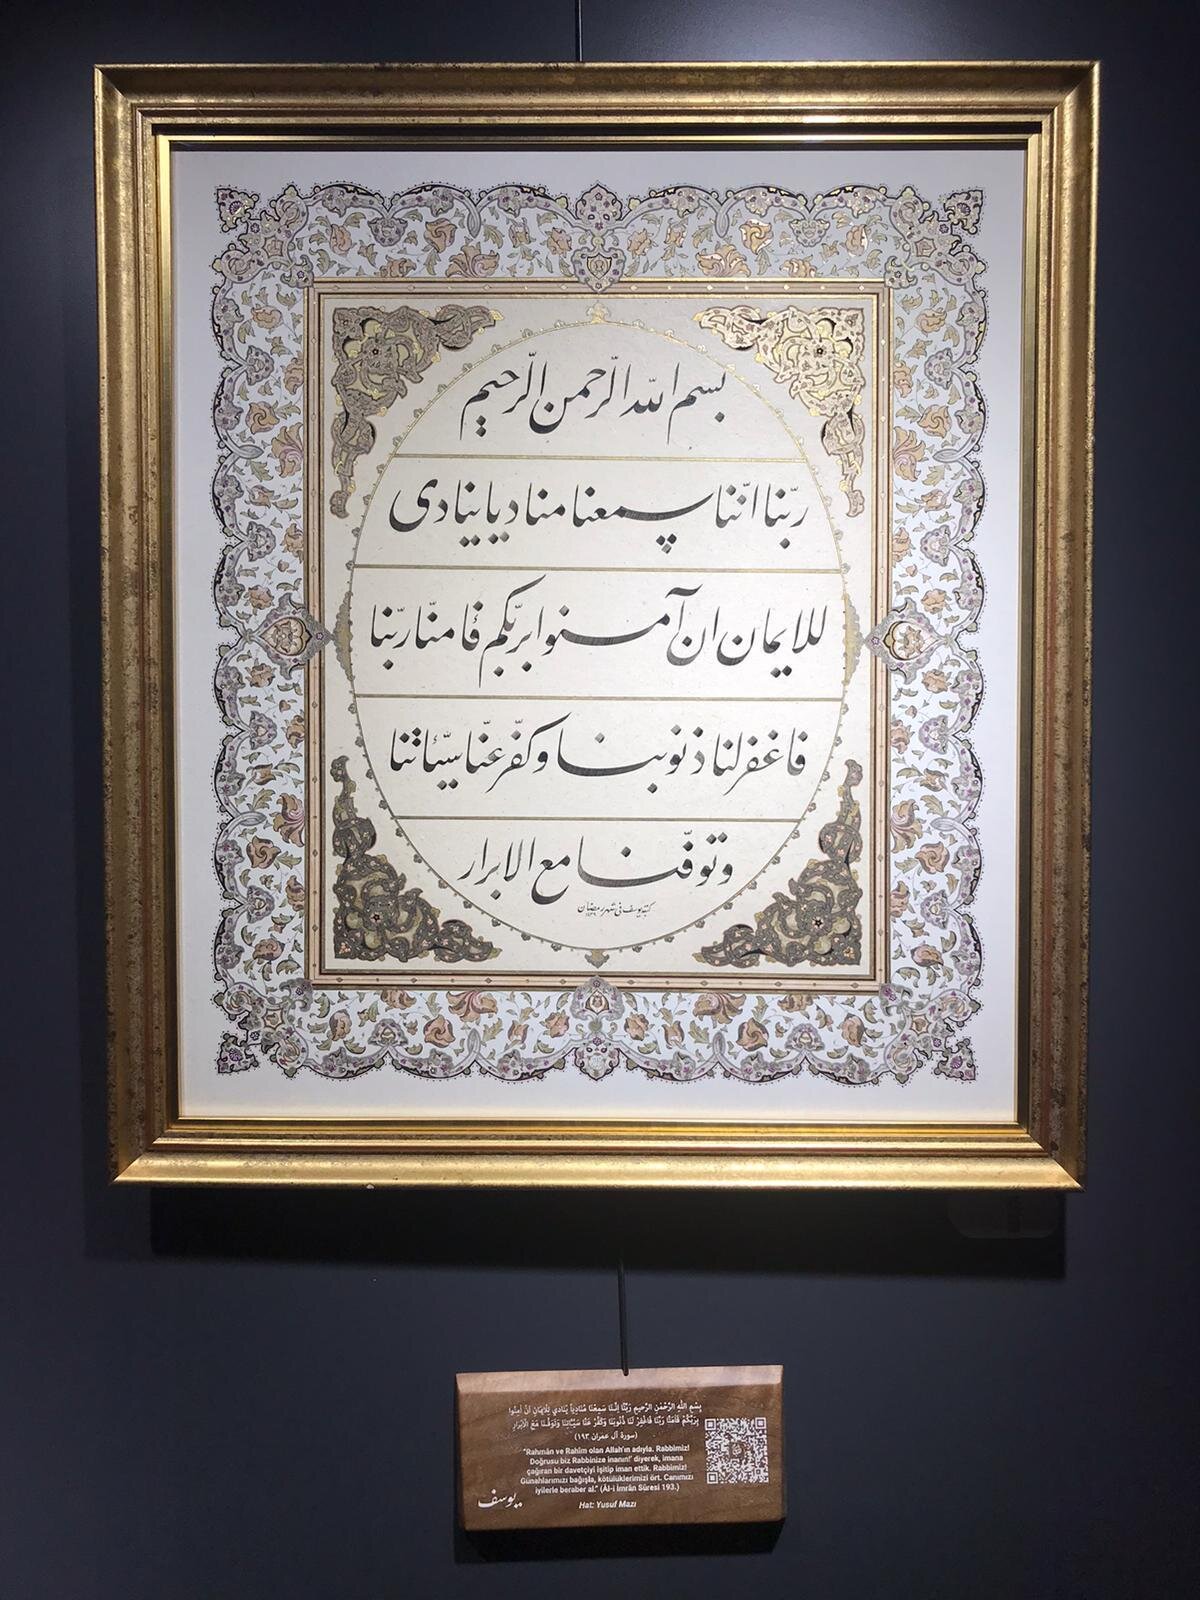 بسم الله الرّحمن الرّحيم
ربّنا انّنا سمعنا مناديا ينادى
للايمان ان آمنوا بربّكم فأمنّا ربّنا
فاغفر لنا ذنوبنا وكفّر عنّا سيّئاتنا
وتوفّنا مع الابرار
كتبه يوسف فى شهر رمضان
بِسْمِ اللهِ الرَّحْمٰنِ الرَّحِيمِ رَبَّنَا اِنَّنَا سَمِعْنَا مُنَادِيًا يُنَادِي لِلْاِيمَانِ اَنْ اٰمِنُوا
بِرَبِّكُمْ فَاٰمَنَّا رَبَّنَا فَاغْفِرْ لَنَا ذُنُوبَنَا وَكَفِّرْ عَنَّا سَيِّئَاتِنَا وَتَوَفَّنَا مَعَ الْاَبْرَارِ
(سورة آل عمران ١٩٣)
"Rahmân ve Rahîm olan Allah'ın adıyla. Rabbimiz!
Doğrusu biz Rabbinize inanın!' diyerek, imana
çağıran bir davetçiyi işitip iman ettik. Rabbimiz!
Günahlarımızı bağışla, kötülüklerimizi ört. Canımızı
iyilerle beraber al." (Âl-i İmrân Sûresi 193.)
Hat: Yusuf Mazı
يوسف